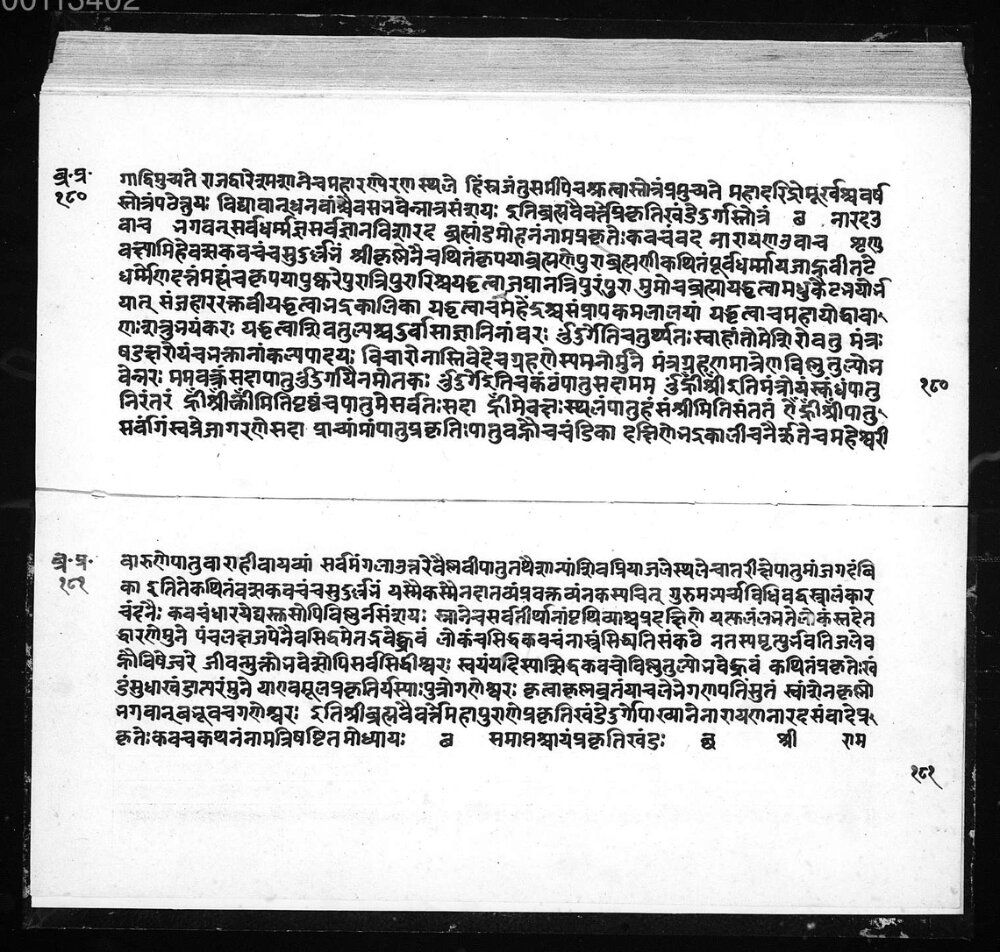 00113402
ब्र॰ प्र॰
१८०
गाद्विमुच्यते राजद्वारे श्मशाने च महारण्ये रणस्थले हिंस्रजंतुसमीपे च श्रुत्वा स्तोत्रं प्रमुच्यते महादरिद्रो मूर्खश्च वर्ष
स्तोत्रं पठेत्तु यः विद्यावान् धनवांश्चैव स भवेन्नात्र संशयः इति ब्रह्मवैवर्त्ते प्रकृतिखंडे दुर्गास्तोत्रं ब नारद उ
वाच भगवन् सर्वधर्म्मज्ञ सर्वज्ञानविशारद ब्रह्मांडमोहनं नाम प्रकृतेः कवचं वद नारायण उवाच शृणु
वक्ष्यामि हे वत्स कवचं च सुदुर्लभं श्रीकृष्णेनैव कथितं कृपया ब्रह्मणे पुरा ब्रह्मणा कथितं पूर्वं धर्म्माय जाह्नवीतटे
धर्म्मेण दत्तं मह्यं च कृपया पुष्करे पुरा त्रिपुरारिश्च यद्धृत्वा जघान त्रिपुरं पुरा मुमोच ब्रह्मा यद्धृत्वा मधुकैटभयोर्भ
यात् संजहार रक्तबीजं यद्धृत्वा भद्रकालिका यद्धृत्वा च महेंद्रश्च संप्राप कमलालयां यद्धृत्वा च महायोद्धा बा
णः शत्रुभयंकरः यद्धृत्वा शिवतुल्यश्च दुर्वासा ज्ञानिनां वरः ॐ दुर्गेति चतुर्थ्यंतः स्वाहांतो मे शिरोवतु मंत्रः
षडक्षरोयं च भक्तानां कल्पपादपः विचारो नास्ति वेदे च ग्रहणेस्य मनोर्मुने मंत्रग्रहणमात्रेण विष्णुतुल्यो भ
वेन्नरः मम वक्त्रं सदा पातु ॐ दुर्गायै नमोंतकः ॐ दुर्गे इति च कंठं पातु सदा मम ॐ ह्रीं श्री इति मंत्रोयं स्कंधं पातु
१८०
निरंतरं ह्रीं श्रीं क्लीमिति पृष्ठं च पातु मे सर्वतः सदा ह्रीं मे वक्षःस्थलं पातु हं सं श्रीमिति संततं ऐं ह्रीं श्रीं पातु
सर्वांगं स्वप्ने जागरणे सदा प्राच्यां मां पातु प्रकृतिः पातु वह्नौ च चंडिका दक्षिणे भद्रकाली च नैर्ऋते च महेश्वरी
ब्र॰ प्र॰
१८१
वारुणे पातु वाराही वायव्यां सर्वमंगला उत्तरे वैष्णवी पातु तथैशान्यां शिवप्रिया जले स्थले चांतरीक्षे पातु मां जगदंबि
का इति ते कथितं वत्स कवचं च सुदुर्लभं यस्मै कस्मै न दातव्यं प्रवक्तव्यं न कस्यचित् गुरुमभ्यर्च्य विधिवद्वस्त्रालंकार
चंदनैः कवचं धारयेद्यस्तु सोपि विष्णुर्न संशयः स्नाने च सर्वतीर्थानां पृथिव्याश्च प्रदक्षिणे यत्फलं लभते लोकस्तदेत
द्धारणे मुने पंचलक्षजपेनैव सिद्धमेतद्भवेद्ध्रुवं लोकं च सिद्धकवचं नास्त्रं सिध्यति संकटे न तस्य मृत्युर्भवति जले व
ह्नौ विषे ज्वरे जीवन्मुक्तो भवेत्सोपि सर्वसिद्धीश्वरः स्वयं यदि स्यात्सिद्धकवचो विष्णुतुल्यो भवेद्ध्रुवं कथितं प्रकृतेः खं
डं सुधाखंडात्परं मुने या एव मूलप्रकृतिर्यस्याः पुत्रो गणेश्वरः कृत्वा कृष्णव्रतं या च लेभे गणपतिं सुतं स्वांशेन कृष्णो
भगवान् बभूव च गणेश्वरः इति श्रीब्रह्मवैवर्त्ते महापुराणे प्रकृतिखंडे दुर्गोपाख्याने नारायणनारदसंवादे प्र
कृतेः कवचकथनं नाम त्रिषष्टितमोध्यायः ब समाप्तश्चायं प्रकृतिखंडः ब्ध श्री राम
१८१